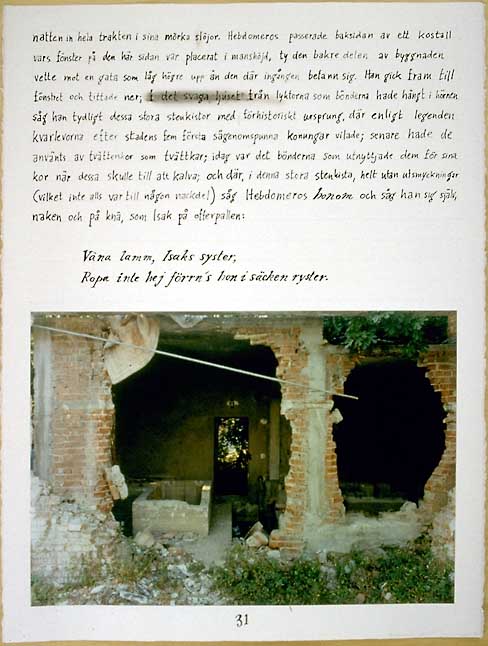 natten in hela trakten i sina mörka slöjor. Hebdomeros passerade baksidan av ett kostall
vars fönster på den här sidan var placerat i manshöjd, ty den bakre delen av byggnaden
vette mot en gata som låg högre upp än den där ingången befann sig. Han gick fram till
fönstret och tittade ner; I det svaga ljuset från lyktorna som bönderna hade hängt i hörnen
såg han tydligt dessa stora stenkistor med förhistoriskt ursprung, där enligt legenden
kvarlevorna efter stadens fem första sägenomspunna konungar vilade; senare hade de
använts av tvättenkor som tvättkar; idag var det bönderna som utnyttjade dem för sina
kor när dessa skulle till att kalva; och där, i denna stora stenkista, helt utan utsmyckningar
(vilket inte alls var till någon nackdel) såg Hebdomeros honom och såg han sig själv,
naken och på knä, som Isak på offerpallen:
Väna lamm, Isaks syster,
Ropa inte hej förrn's hon i säcken ryster.
31